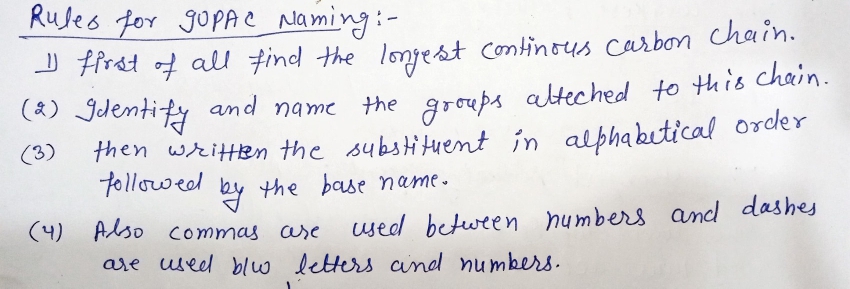 Rules for IUPAC Naming:-
1) first of all find the longest continous carbon chain.
(2) Identify and name the groups atteched to this chain.
(3) then written the substituent in alphabetical order
followed by the base name.
(4) Also commas are used between numbers and dashes
are used b/w letters and numbers.